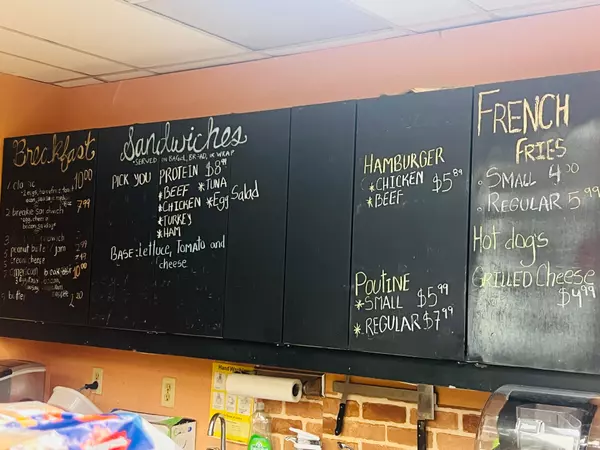 Breakfast
classic 10.00
2 breakie sandwich 7.99
peanut butter / jam
cream cheese
american breakfast 10.00
butter
Sandwiches
SERVED IN BAGEL, BREAD, OR WRAP
PICK YOU PROTEIN $8.99
*BEEF *TUNA
*CHICKEN *Egg Salad
*TURKEY
*HAM
BASE: lettuce, Tomato and
cheese
HAMBURGER
*CHICKEN $5.89
*BEEF
POUTINE
*SMALL $5.99
*REGULAR $7.99
FRENCH
FRIES
SMALL 4.00
REGULAR 5.99
Hot dog's
GRILLED Cheese
$4.99